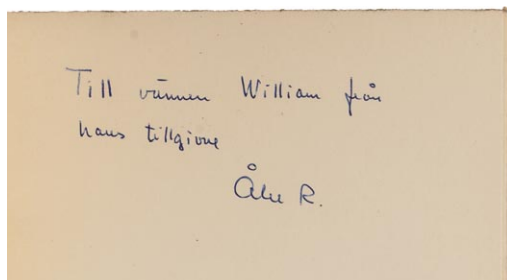 Till vännen William från
hans tillgivne
Åke R.